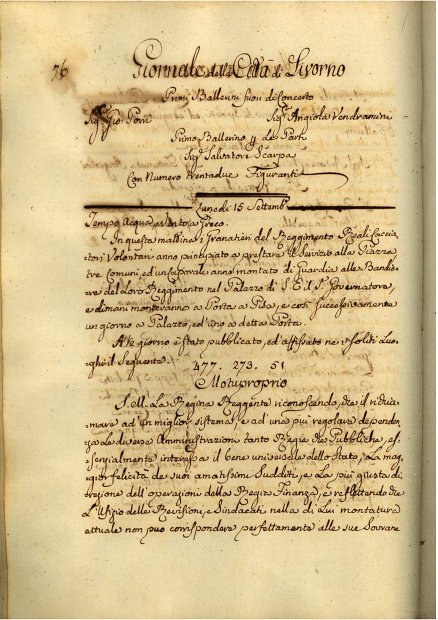 76
Giornale della Città di Livorno
Primi Ballerini fuori di Concerto
Sig.r Gio: Porri Sig.a Angiola Vendramini
Primo Ballerino p. le Parti
Sig.r Salvatore Scarpa
Con Numero trentadue Figuranti
Lunedì 15 Settemb.
Tempo Acqua, e Vento a Greco.
In questa mattina i Granatieri del Reggimento Reali Caccia
tori Volontari anno principiato a prestare il Servizio alla Piazza
tre Comuni, ed un Caporale anno montato di Guardia alle Bandie
re del loro Reggimento nel Palazzo di S. E. il S.r Governatore,
e dimani monteranno a Porta a Pisa, e così successivamente
un giorno a Palazzo, ed uno a detta Porta.
A dì giorno è stato pubblicato, ed affissato ne soliti Luo
ghi il Seguente
477. 273. 51
Motuproprio
S. M. La Regina Reggente riconoscendo, che il richia
mare ad un miglior sistema, e ad una più regolare dependen
za le diverse Amministrazioni tanto Regie che Pubbliche, es
senzialmente interessa il bene universale dello Stato, La mag
gior felicità de suoi amatissimi Sudditi, e La più giusta di
rezione dell'operazioni della Regia Finanza, e reflettendo che
L'Ufizio delle Revisioni, e Sindacati nella di Lui montatura
attuale non può corrispondere perfettamente alle sue Sovrane